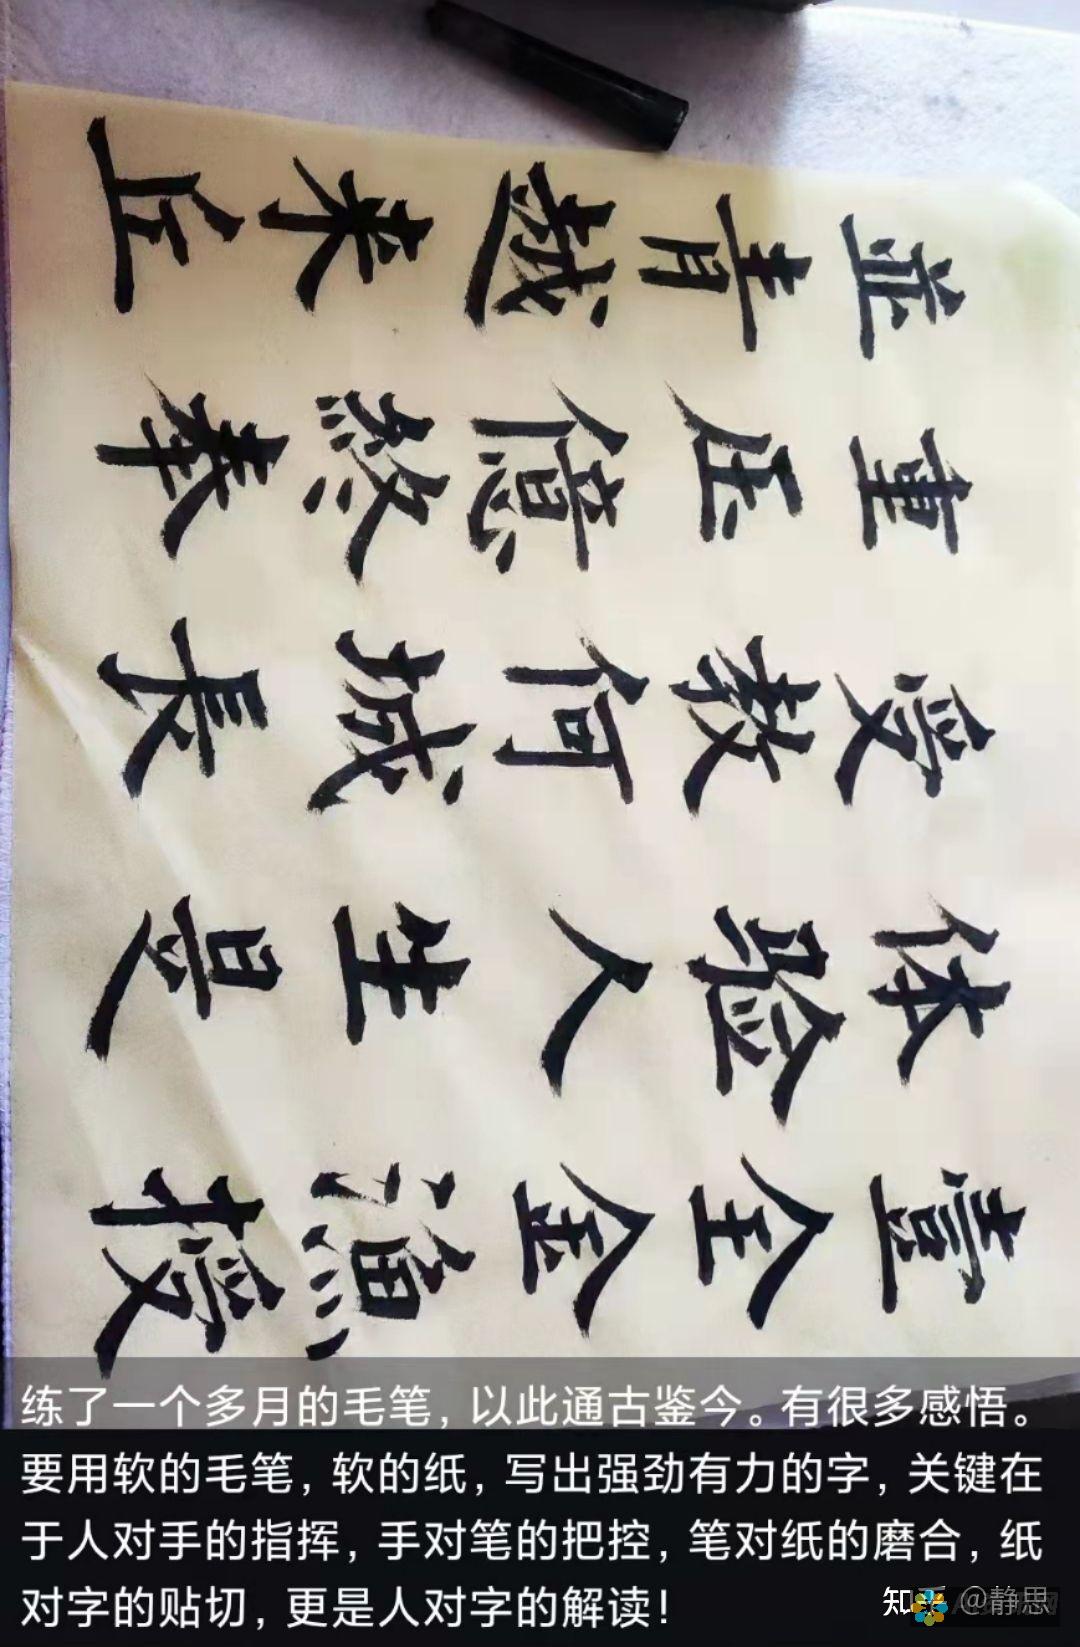 壹全金漁授
体验人生是
受教何城長
重压億終奉
並青越来丘
练了一个多月的毛笔，以此通古鉴今。有很多感悟。
要用软的毛笔，软的纸，写出强劲有力的字，关键在
于人对手的指挥，手对笔的把控，笔对纸的磨合，纸
对字的贴切，更是人对字的解读！
知乎 @静思